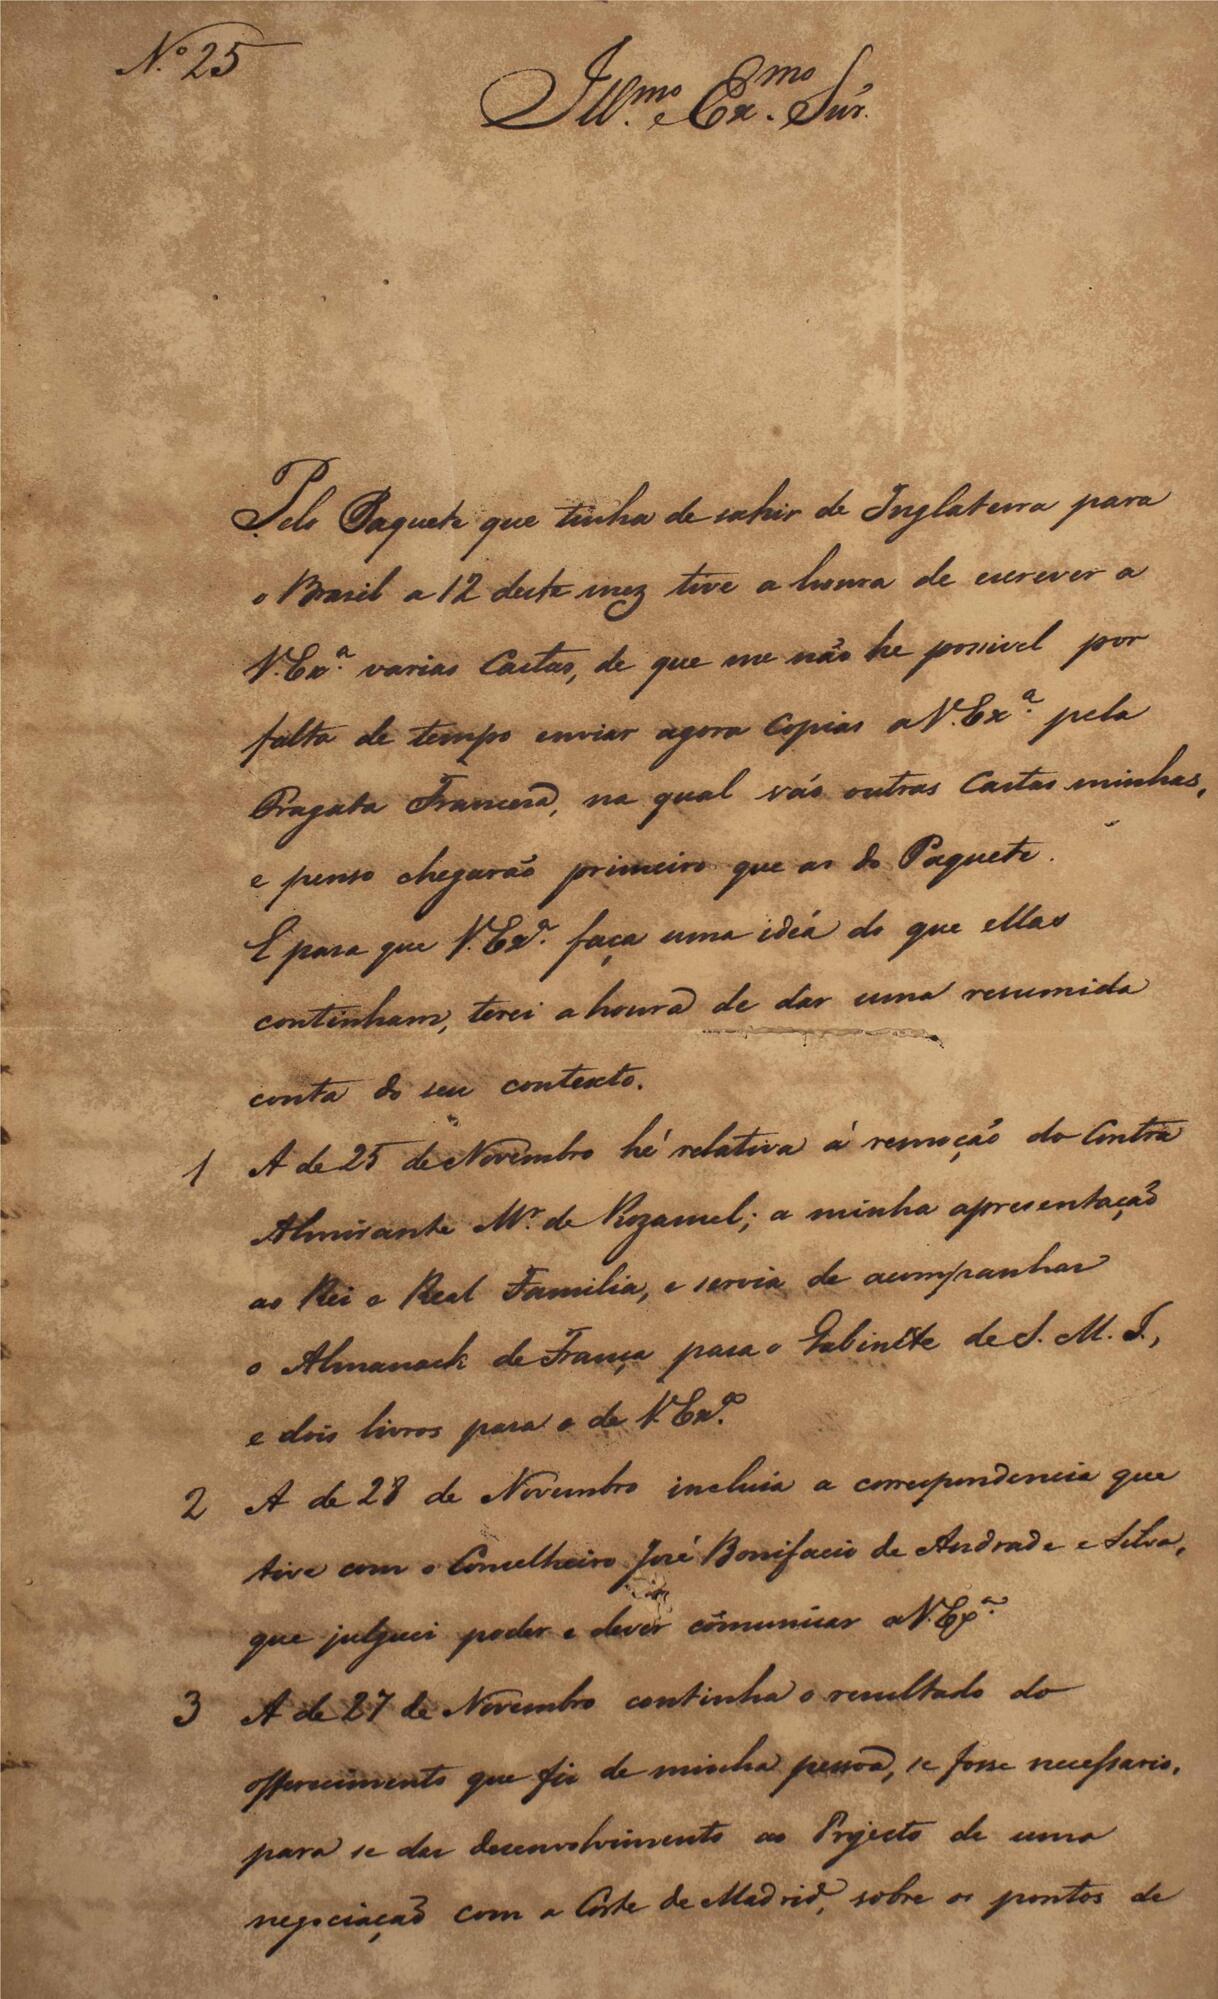 N.º 25
Ill.mo e Ex.mo Snr.
Pelo Paquete que tinha de sahir de Inglaterra para
o Brasil a 12 deste mez tive a honra de escrever a
V. Ex.ª varias Cartas, de que me não he possivel por
falta de tempo enviar agora Copias a V. Ex.ª pela
Fragata Francesa, na qual vão outras Cartas minhas,
e penso chegarão primeiro que as do Paquete.
E para que V. Ex.ª faça uma idéa do que ellas
continham, terei a honra de dar uma resumida
conta do seu contexto.
1 A de 25 de Novembro hé relativa á remoção do Contra
Almirante Mr. de Rozamel; a minha apresentação
ao Rei e Real Familia, e servia de acompanhar
o Almanack de França para o Gabinête de S. M. I.,
e dois livros para o de V. Ex.ª
2 A de 28 de Novembro incluia a correspondencia que
tive com o Conselheiro José Bonifacio de Andrada e Silva,
que julguei poder e dever cômunicar a V. Ex.ª
3 A de 27 de Novembro continha o resultado do
offerecimento que fiz de minha pessoa, se fosse necessario,
para se dar desenvolvimento ao Projecto de uma
negociação com a Côrte de Madrid, sobre os pontos de